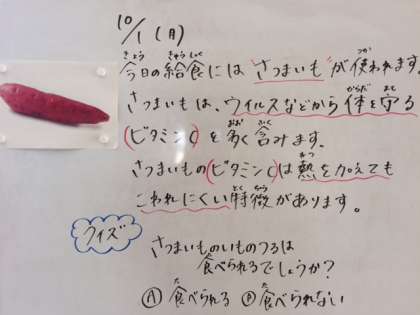 10/1(月)
今日の給食には"さつまいも"が使われます。
さつまいもは、ウイルスなどから体を守る
(ビタミンC)を多く含みます。
さつまいもの(ビタミンC)は熱を加えても
こわれにくい特徴があります。
クイズ
さつまいものいものつるは
食べられるでしょうか?
Ⓐ食べられる Ⓑ食べられない